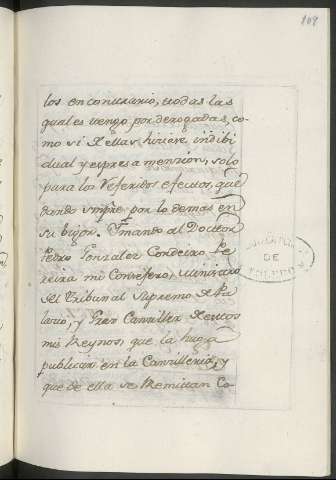 108
los en contrario, todas las
quales vengo por derogadas, co-
mo si de ellas hiciere indibi
dual y expresa mencion, solo
para los referidos efectos, que
dando siempre por lo demas en
su bigor. Y mando al Doctor
Pedro Gonzalez Condeiro Pe
reira mi Consejero,
del Tribunal Supremo de Pa
lacio, y Gran Canziller de estos
mis Reynos, que la haga
publicar en la Canzilleria, y
que de ella se Remittan Co
DE
TOLEDO